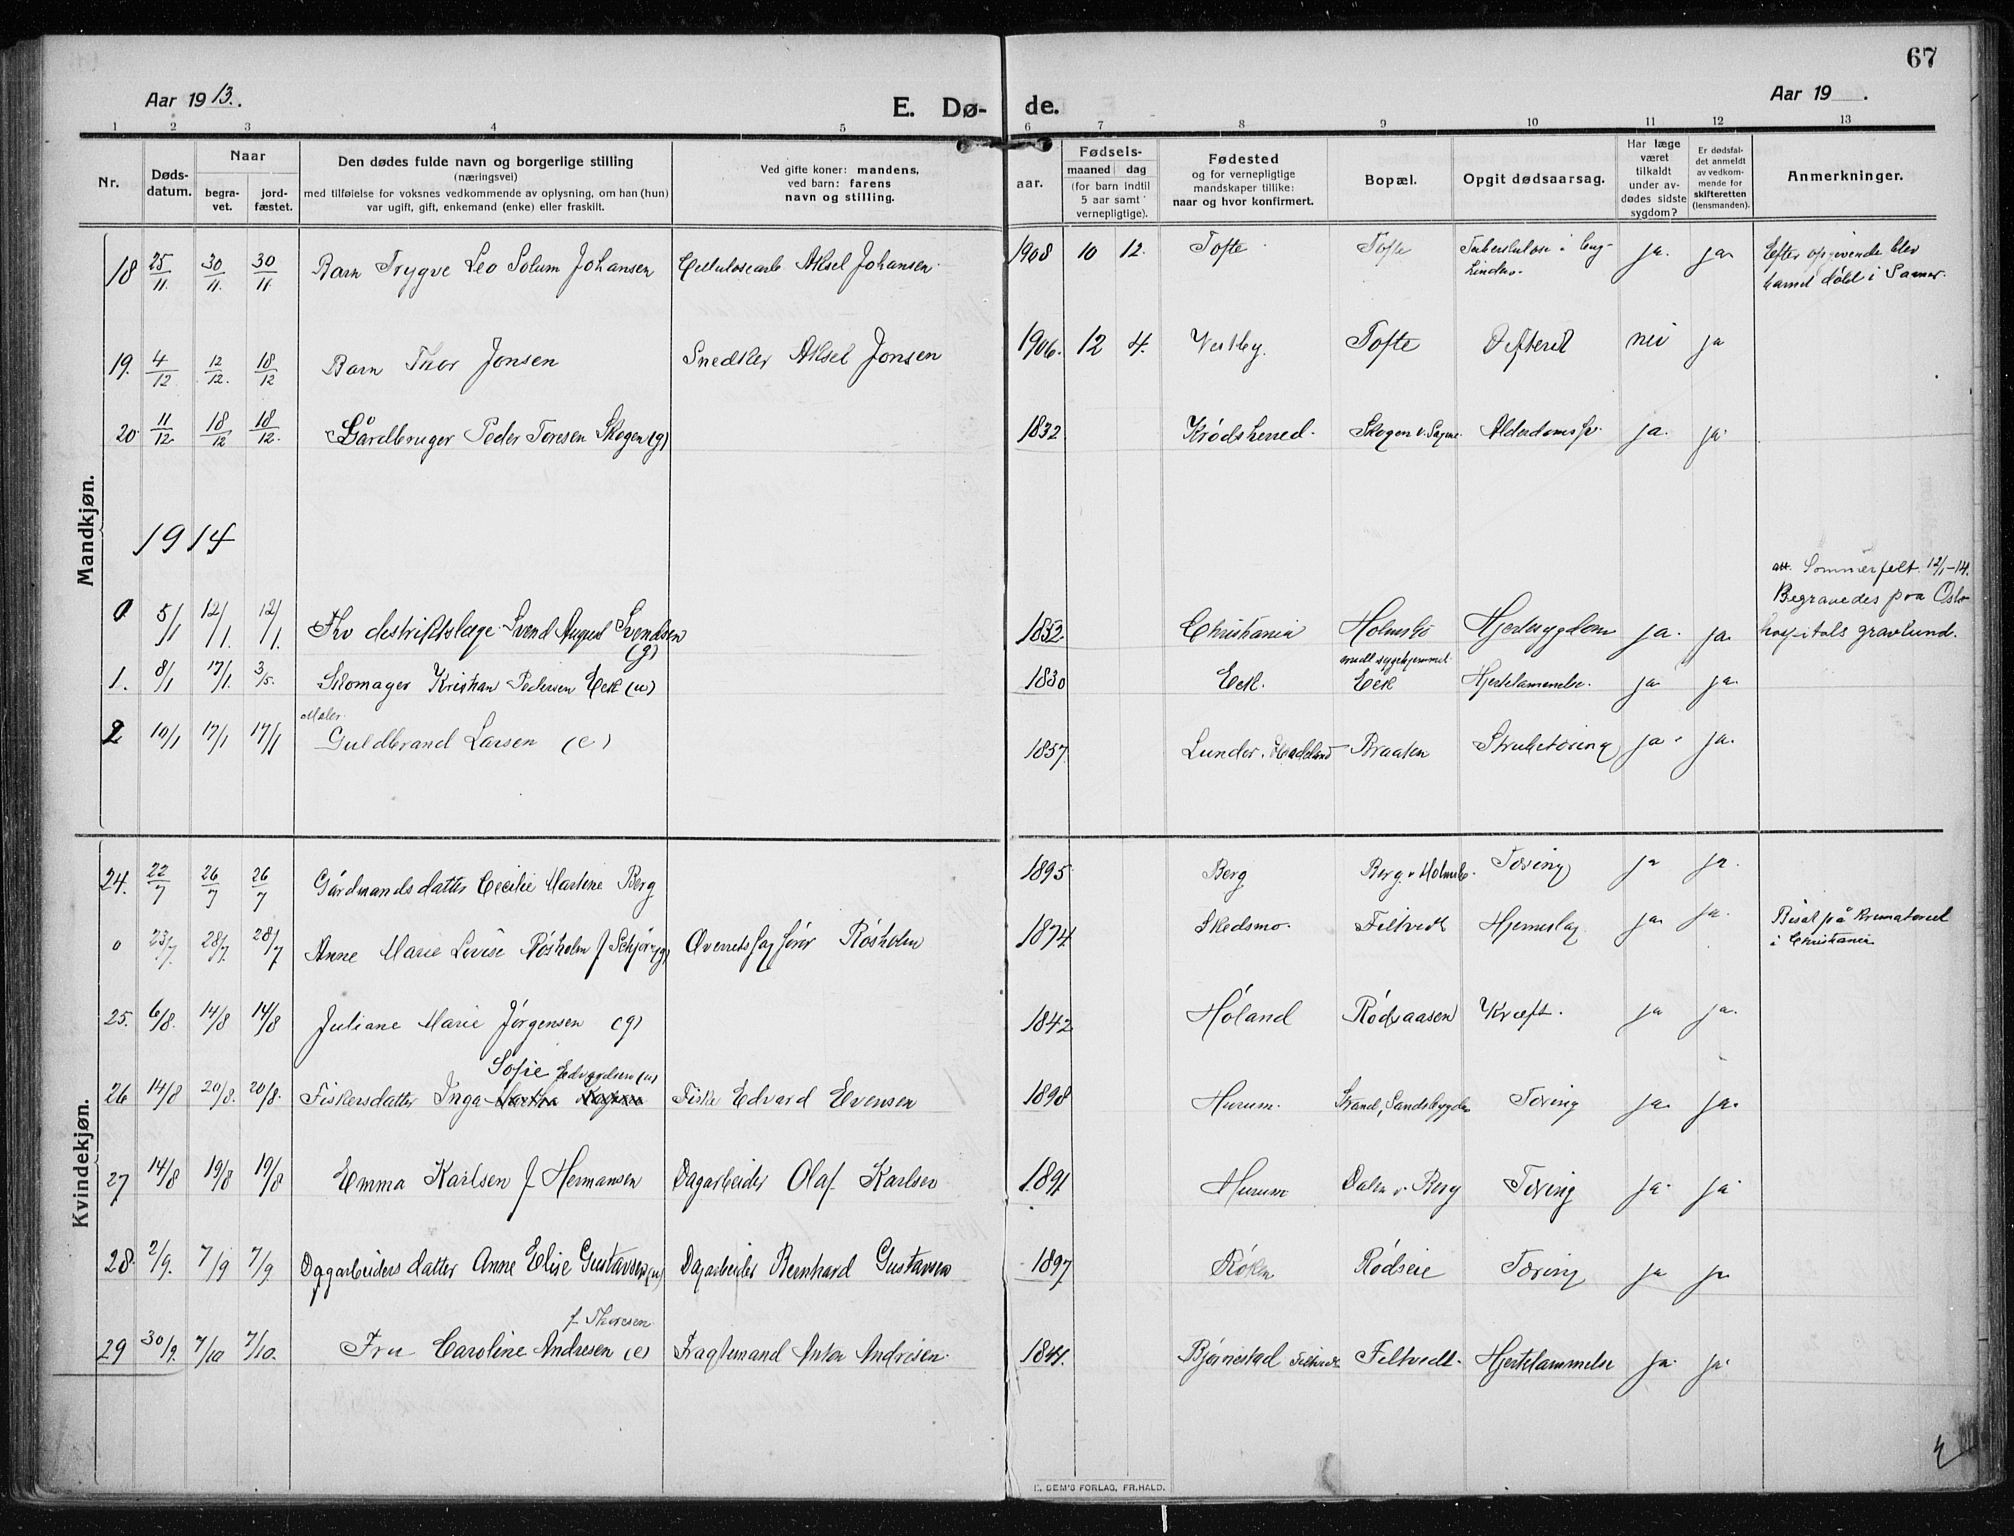 67
Aar 1913.
E. Dø-
de.
Aar 19 .
1 2 3 4 5 6 7 8 9 10 11 12 13
Nr.
Døds-
datum.
Naar
begra-
vet.
jord-
fæstet.
Den dødes fulde navn og borgerlige stilling
(næringsvei)
med tilføielse for voksnes vedkommende av oplysning, om han (hun)
var ugift, gift, enkemand (enke) eller fraskilt.
Ved gifte koner: mandens,
ved barn: farens
navn og stilling.
aar.
Fødsels-
maaned dag
(for barn indtil
5 aar samt
vernepligtige).
Fødested
og for vernepligtige
mandskaper tillike:
naar og hvor konfirmert.
Bopæl.
Opgit dødsaarsag.
Har læge
været
tilkaldt
under av-
dødes sidste
sygdom?
Er dødsfal-
det anmeldt
av vedkom-
mende for
skifteretten
(lensmanden).
Anmerkninger.
Mandkjøn.
18 25/11. 30/11. 30/11 Barn Trygve Leo Solum Johansen Cellulosearb Aksel Johansen. 1908 10 12. Tofte Tofte Tuberkulose i ja. ja Efter opgivende blev
barnet død i
19. 4/12 12/12. 18/12 Barn Thor Jonsen Snedker Aksel Jonsen 1906. 12 4. Vestby. Tofte Difterit nei ja
20. 11/12 18/12 18/12. Gårdbruger Peder Toresen Skogen (g) 1832 Krødsherred. Skogen v. Alderdomssv. ja. ja.
1914
att. Sommerfelt 12/1-14.
Begravedes paa Oslo
0 5/1 12/1. 12/1. Fhv distriktslæge Svend August Svendsen
(g) 1852 Christiania Holmsbo Hjertesygdom ja. ja. hospitals gravlund.
1. 8/1 17/1. 3/5. Skomager Kristian Pedersen Eck (u) 1830 Eck. Eck Hjertelammelse. ja ja.
Maler
2 10/1 17/1 17/1 Guldbrand Larsen (e) 1857. Lunder, Hadeland Braaten Strubetæring ja ja.
Kvindekjøn.
24. 22/7 26/7 26/7 Gårdmandsdatter Cecilie Martine Berg 1895 Berg Berg v Holmsb. Tæring ja ja.
0 23/7 28/7 28/7 Anne Marie Lovise Røsholm f (g) Overretssagfører Røsholm 1874 Skedsmo. Filtvedt Hjerneslag ja ja. Bisat på krematoriet
i Christiania
25. 6/8. 14/8 14/8 Juliane Marie Jørgensen (g) 1842 Høland Rødsaasen Kræft. ja ja.
Sofie Edvardsen (u)
26 14/8 20/8. 20/8. Fiskersdatter Inga Fisker Edvard Evensen 1898 Hurum. Strand, Sandsbygden Tæring ja. ja.
27 14/8 19/8 19/8 Emma Karlsen f Hermansen Dagarbeider Olaf Karlsen 1891 Hurum Dalen v Berg Tæring ja. ja.
28. 2/9. 7/9 7/9 Dagarbeiders datter Anne Elise Gustavsen (u) Dagarbeider Bernhard Gustavsen 1897 Røken Rødseie Tæring ja ja
f Thoresen
29 30/9. 7/10 7/10. Fru Caroline Andresen (e) Fragtemand Anton Andresen. 1841. Bjørnestad Filtvedt Filtvedt. Hjertelammelse ja. ja.
E. SEM'S FORLAG, FR.HALD.